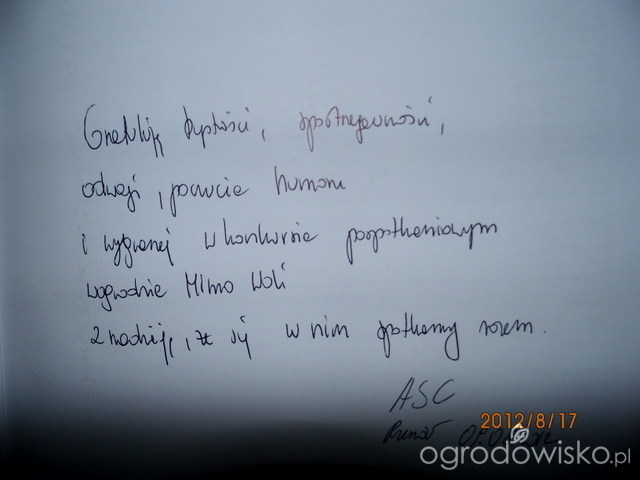 Gratuluję bystości, spostrzegawczości,
odwagi, poczucia humoru
i wygranej w konkursie pospotkaniowym
wogrodzie Mimo Woli
z nadzieją, że się w nim spotkamy razem.
ASC
2012/8/17
ogrodowisko.pl